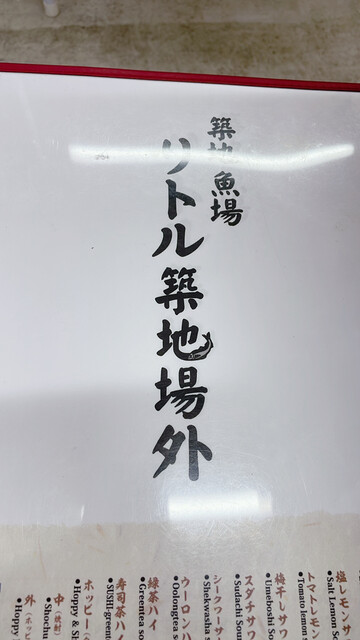 築地魚場
リトル築地場外
塩レモンサ
• Salt Lemon S
トマトレモ
• Tomato lemon
梅干しサ
• Umeboshi So
スダチサ
• Sudachi Sou
シークワーサ
• Shekwasha
ウーロンハ
• Oolongtea s
緑茶ハイ
• Greentea so
寿司茶ハイ
• SUSHI-greent
ホッピー(
• Hoppy & Sh
中(焼酎)
• Shochu
外(ホッピ
• Hoppy